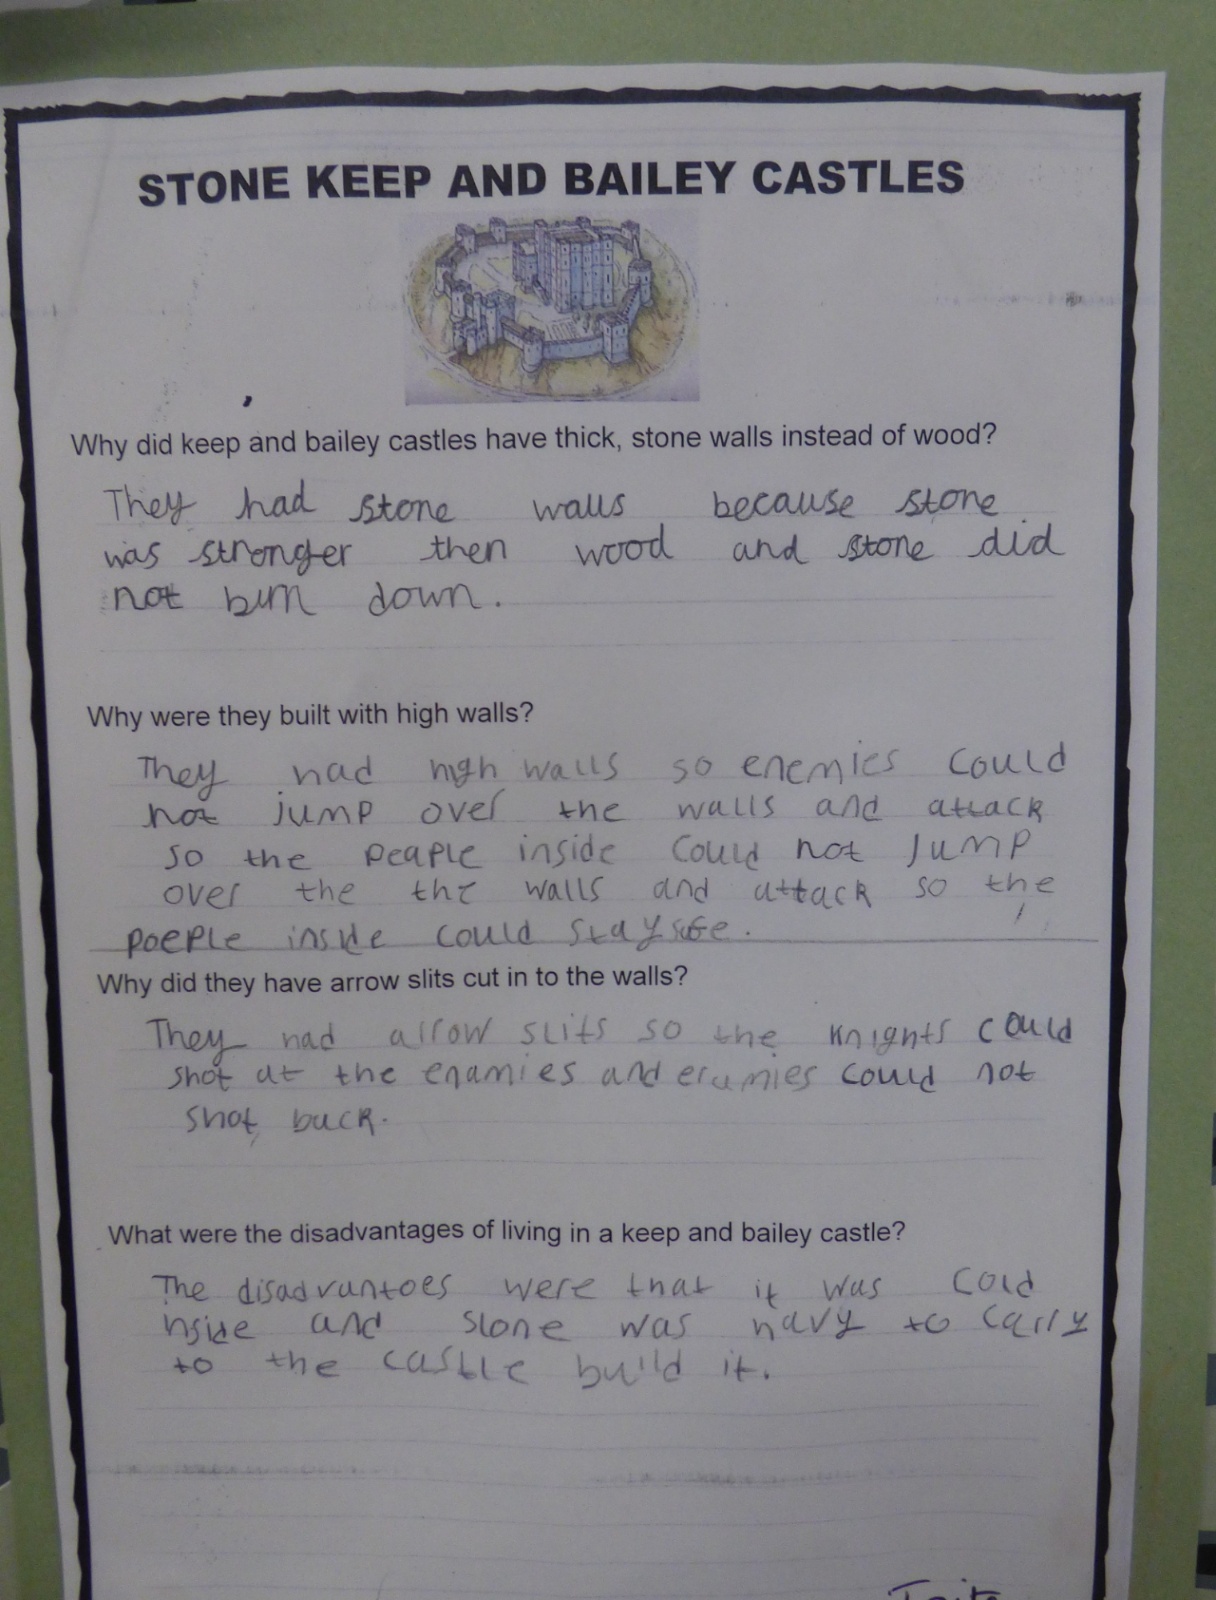 STONE KEEP AND BAILEY CASTLES
Why did keep and bailey castles have thick, stone walls instead of wood?
They had stone walls because stone
was stronger then wood and stone did
not burn down.
Why were they built with high walls?
They had high walls so enemies could
not jump over the walls and attack
so the peaple inside could not jump
over the the walls and attack so the
poeple inside could stay safe.
Why did they have arrow slits cut in to the walls?
They had arrow slits so the knights could
shot at the enamies and enamies could not
shot back.
What were the disadvantages of living in a keep and bailey castle?
The disadvantoes were that it was cold
inside and stone was havy to carry
to the castle build it.